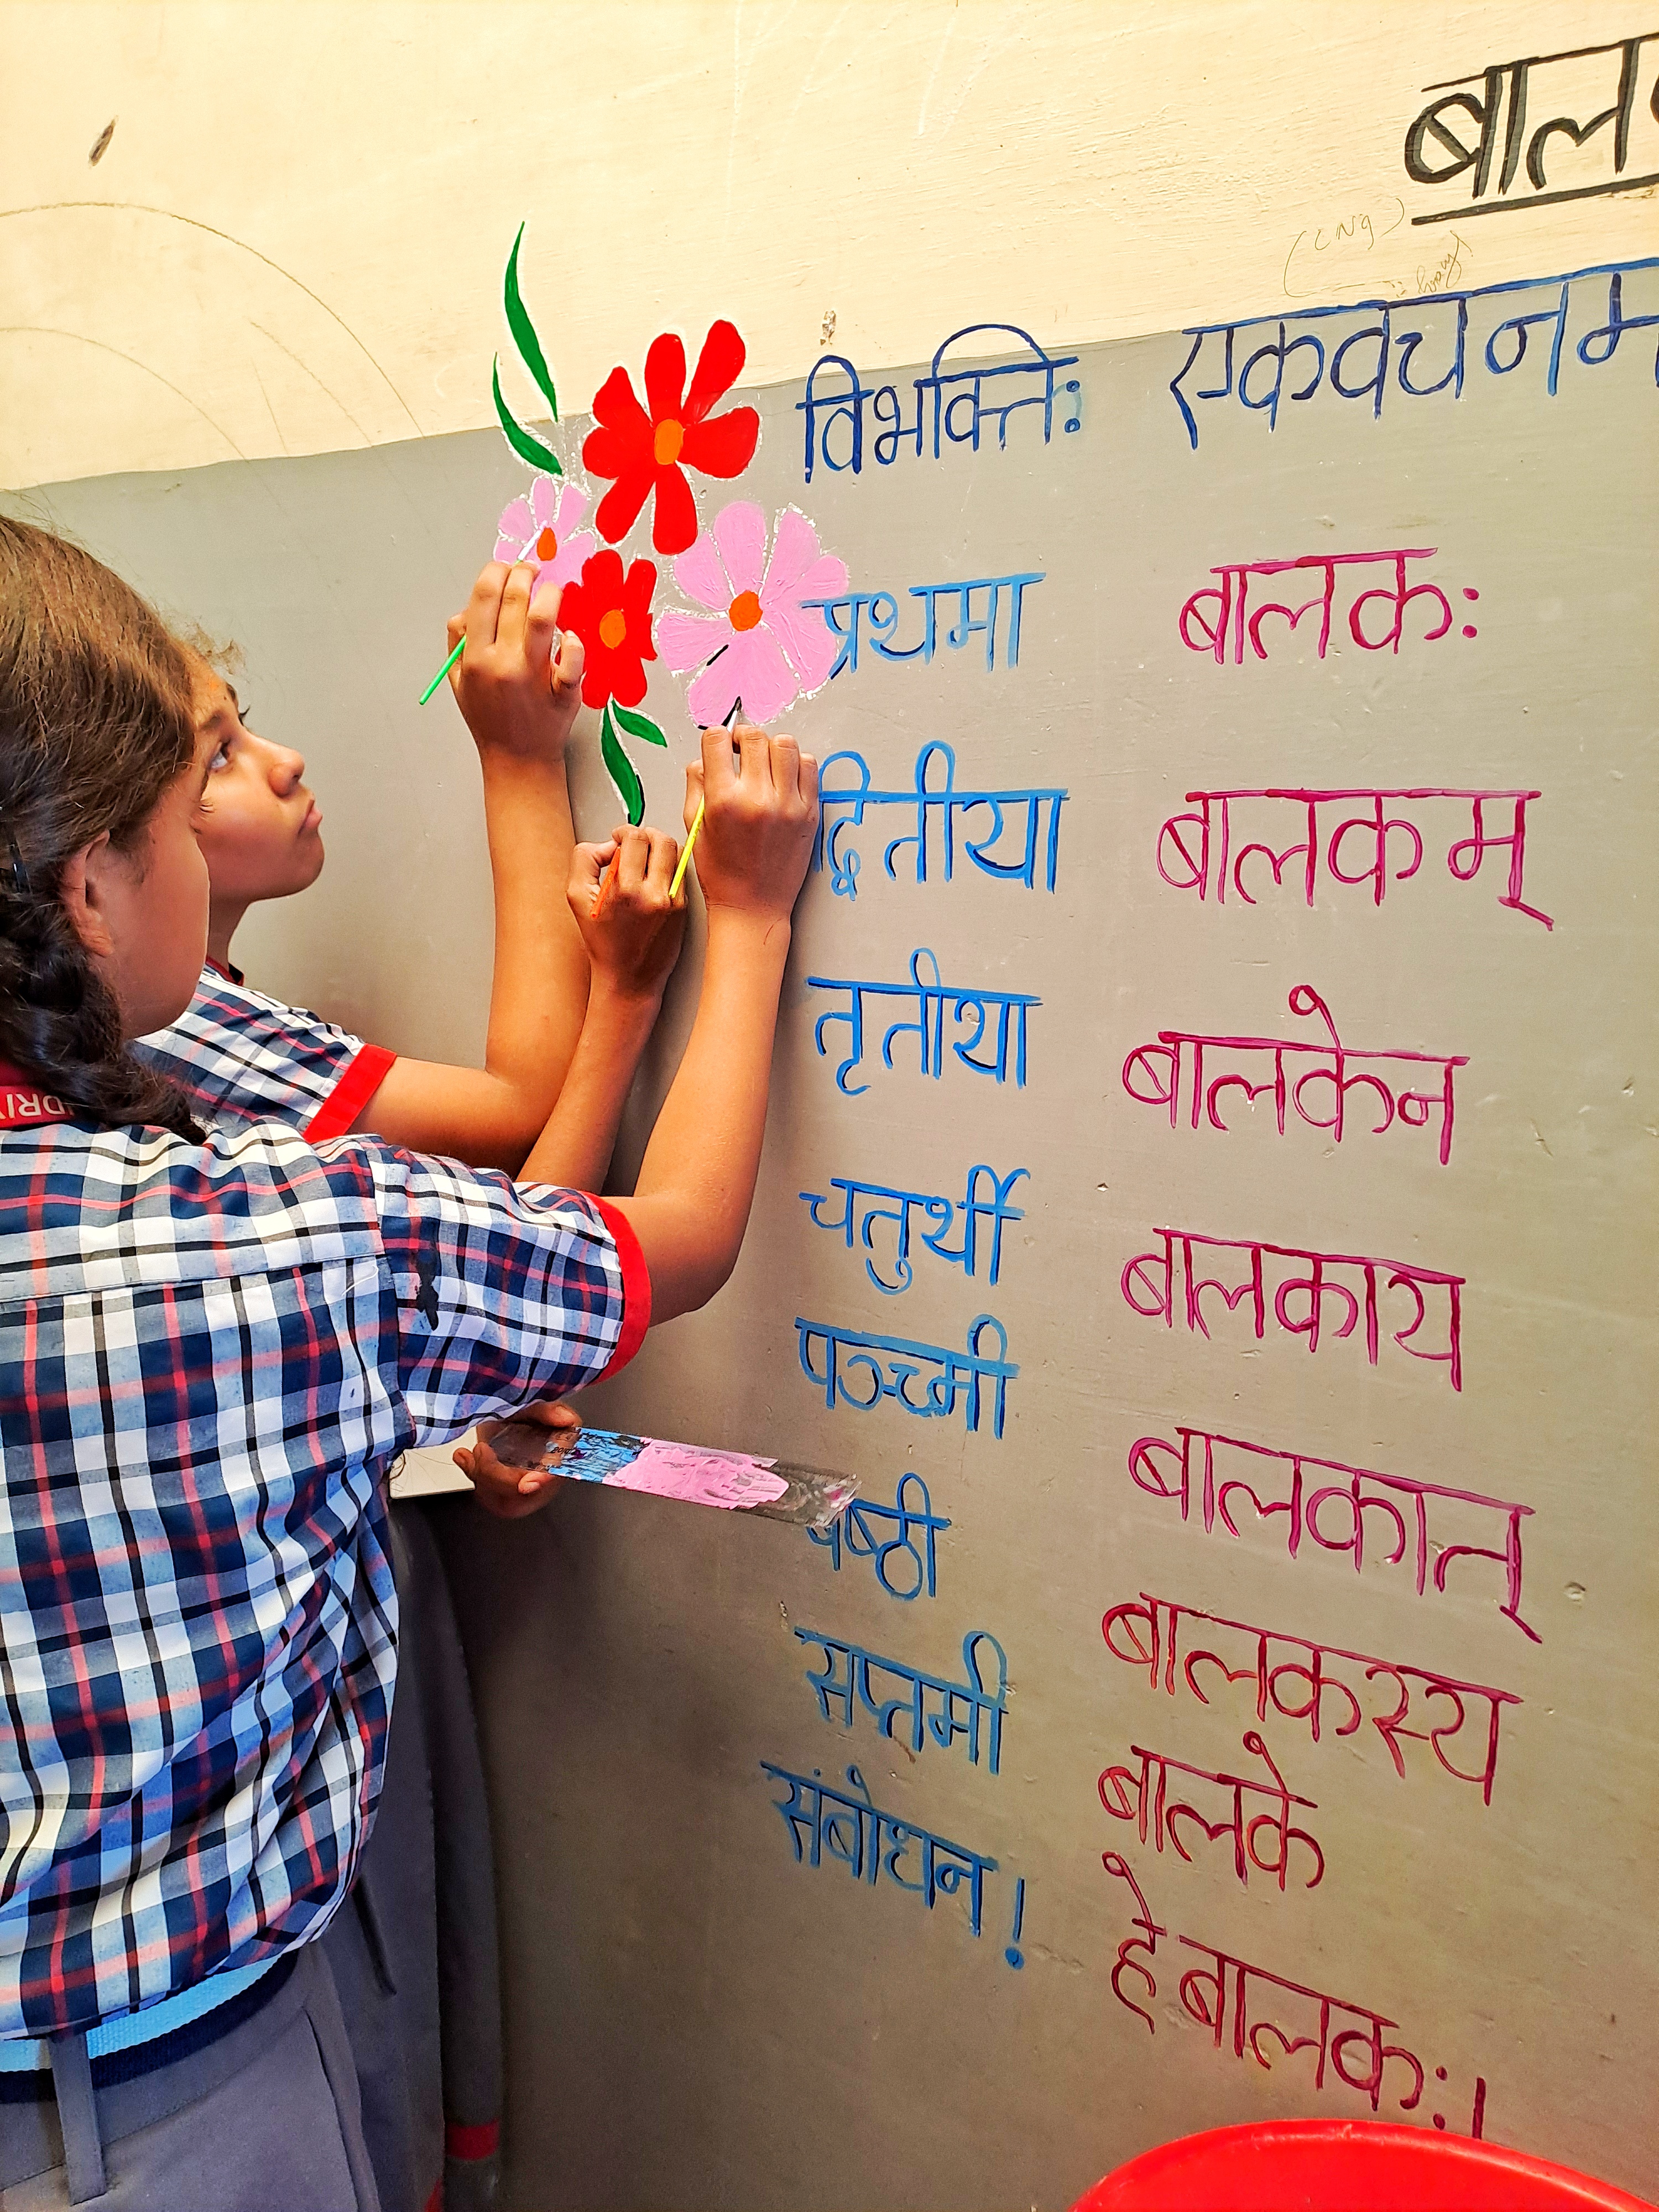 बाल
विभक्तिः एकवचनम
प्रथमा बालकः
द्वितीया बालकम्
तृतीया बालकेन
चतुर्थी बालकाय
पञ्चमी बालकात्
षष्ठी बालकस्य
सप्तमी बालके
संबोधन! हे बालकः!